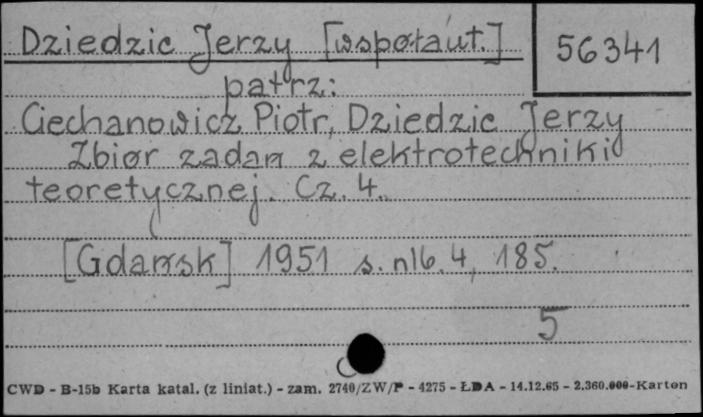 Dziedzic Jerzy [współaut.]
56341
patrz:
Ciechanowicz Piotr, Dziedzic Jerzy
Zbiór zadań z elektrotechniki
teoretycznej. Cz. 4.
[Gdańsk] 1951 s. nlb. 4, 185.
5
CWD - B-15b Karta katal. (z liniat.) - zam. 2740/ZW/P - 4275 - ŁDA - 14.12.65 - 2.360.000-Karton